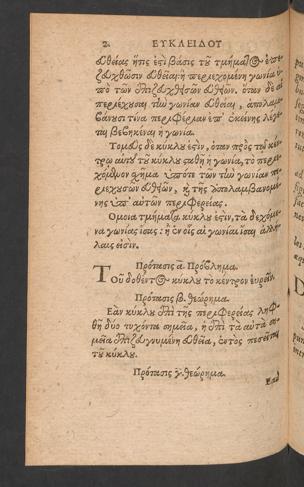 2. ΕΥΚΛΕΙΔΟΥ
εὐθείας ἥτις ἐστὶ βάσις τοῦ τμήματος ἐπι-
ζευχθῶσιν εὐθεῖαι· ἡ περιεχομένη γωνία ὑ-
πὸ τῶν ἐπιζευχθεισῶν εὐθειῶν. ὅταν δὲ αἱ
περιέχουσαι τὴν γωνίαν εὐθεῖαι, ἀπολαμ-
βάνωσί τινα περιφέρειαν ἐπ' ἐκείνης λέγε-
ται βεβηκέναι ἡ γωνία.
Τομεὺς δὲ κύκλου ἐστὶν, ὅταν πρὸς τῷ κέν-
τρῳ αὐτοῦ τοῦ κύκλου σταθῇ ἡ γωνία, τὸ περιε-
χόμενον σχῆμα ὑπό τε τῶν τὴν γωνίαν πε-
ριεχουσῶν εὐθειῶν, ἢ τῆς ἀπολαμβανομέ-
νης ὑπ' αὐτῶν περιφερείας.
Ὅμοια τμήματα κύκλου ἐστὶν, τὰ δεχόμε-
να γωνίας ἴσας: ἢ ἐν οἷς αἱ γωνίαι ἴσαι ἀλλή-
λαις εἰσίν.
Πρότασις α. Πρόβλημα.
Τοῦ δοθέντος κύκλου τὸ κέντρον εὑρεῖν.
Πρότασις β. θεώρημα.
Ἐὰν κύκλου ἐπὶ τῆς περιφερείας ληφ-
θῇ δύο τυχόντα σημεῖα, ἡ ἐπὶ τὰ αὐτὰ ση-
μεῖα ἐπιζευγνυμένη εὐθεῖα, ἐντὸς πεσεῖται
τοῦ κύκλου.
Πρότασις γ. θεώρημα.
Ἐὰν